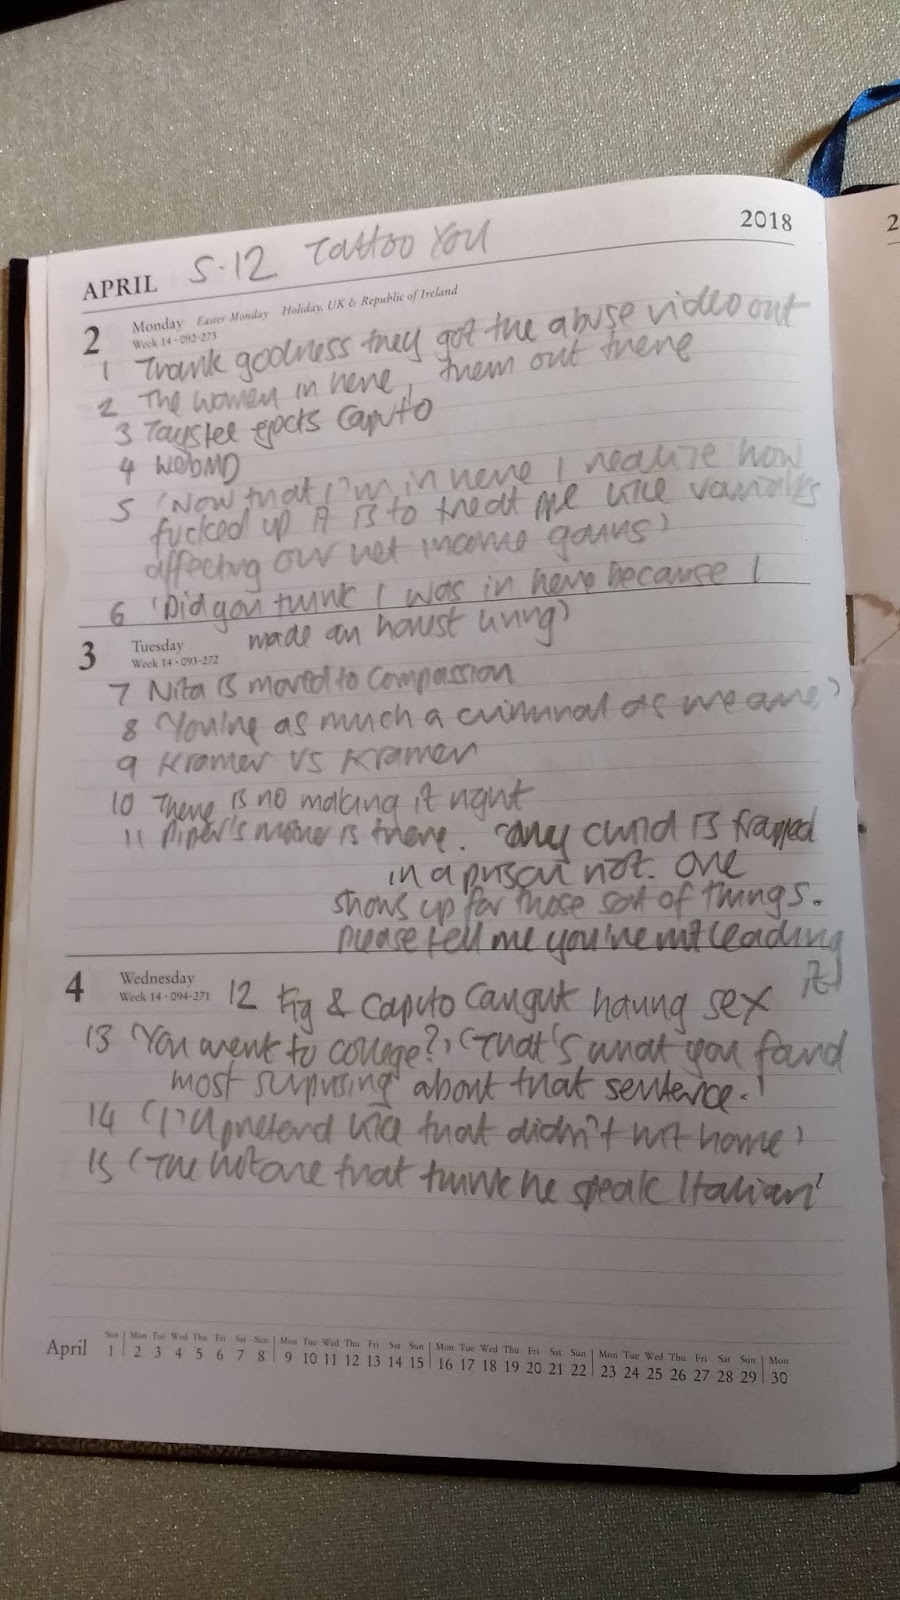 2018
2
APRIL 5.12 Tattoo You
2 Monday Easter Monday Holiday, UK & Republic of Ireland
Week 14 · 092-273
1 Thank goodness they got the abuse video out
2 The women in here, them out there
3 Taystee ejects Caputo
4 WebMD
5 'Now that I'm in here I realize how
fucked up it is to treat ppl like variables
affecting our net income gains'
6 'Did you think I was in here because I
made an honest living'
3 Tuesday
Week 14 · 093-272
7 Nita is moved to compassion
8 'You're as much a criminal as we are'
9 Kramer vs Kramer
10 There is no making it right
11 Piper's mother is there. 'My child is trapped
in a prison riot. One
shows up for those sort of things.
Please tell me you're not leading
it'
4 Wednesday
Week 14 · 094-271
12 Fig & Caputo caught having sex
13 'You went to college?' 'That's what you found
most surprising about that sentence.'
14 'I'll pretend like that didn't hit home'
15 'The hot one that think he speak Italian'
April
Sun Mon Tue Wed Thu Fri Sat Sun Mon Tue Wed Thu Fri Sat Sun Mon Tue Wed Thu Fri Sat Sun Mon Tue Wed Thu Fri Sat Sun Mon
1 2 3 4 5 6 7 8 9 10 11 12 13 14 15 16 17 18 19 20 21 22 23 24 25 26 27 28 29 30